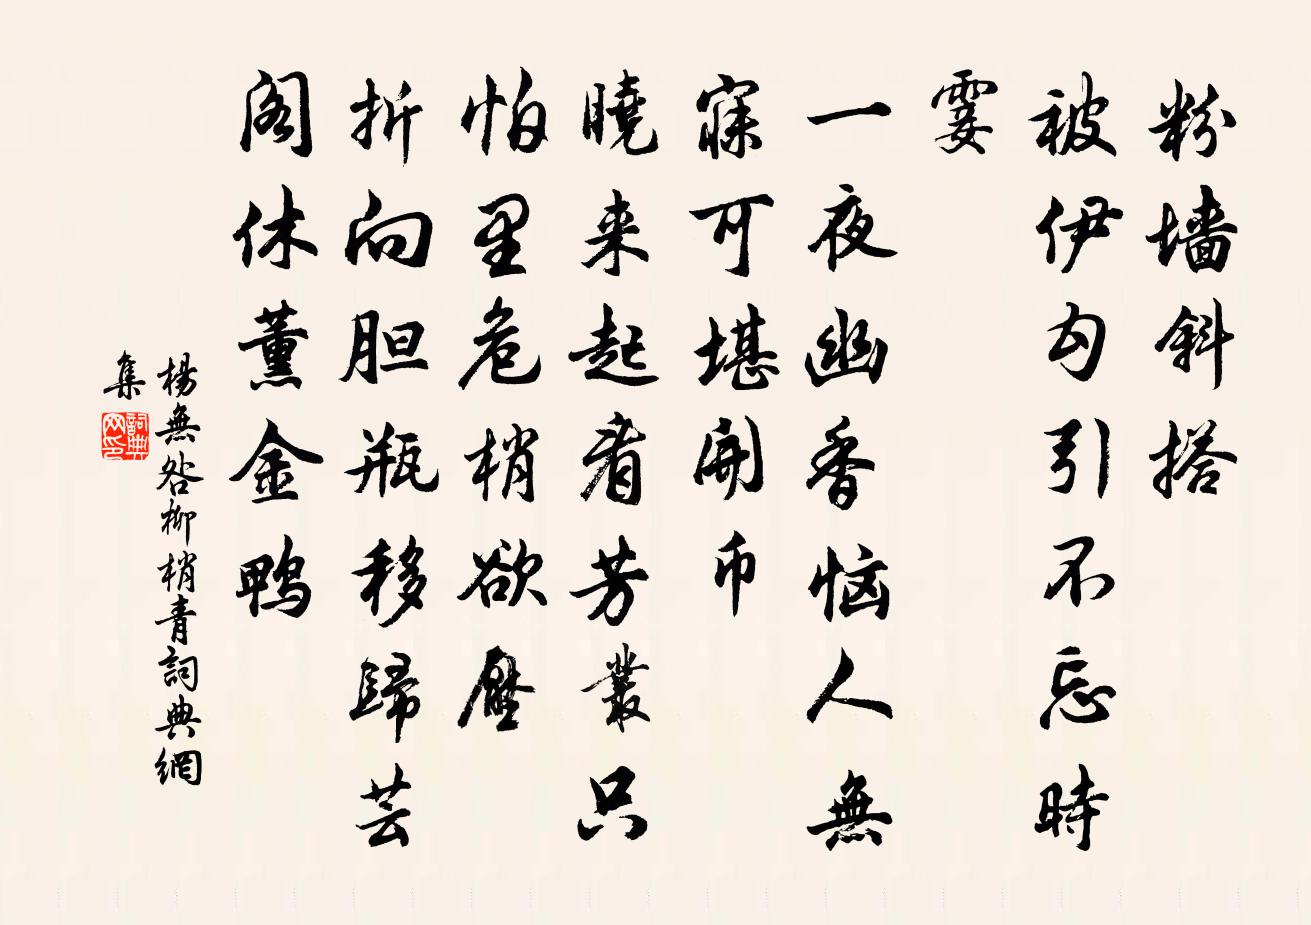 粉墙斜搭
被伊勾引不忘時
霎
一夜幽香恼人無
寐可堪開币
曉来起看芳叢只
怕里危梢欲壓
折向胆瓶移歸芸
阁休薰金鸭
楊無咎柳梢青詞典網
集
詞典网印